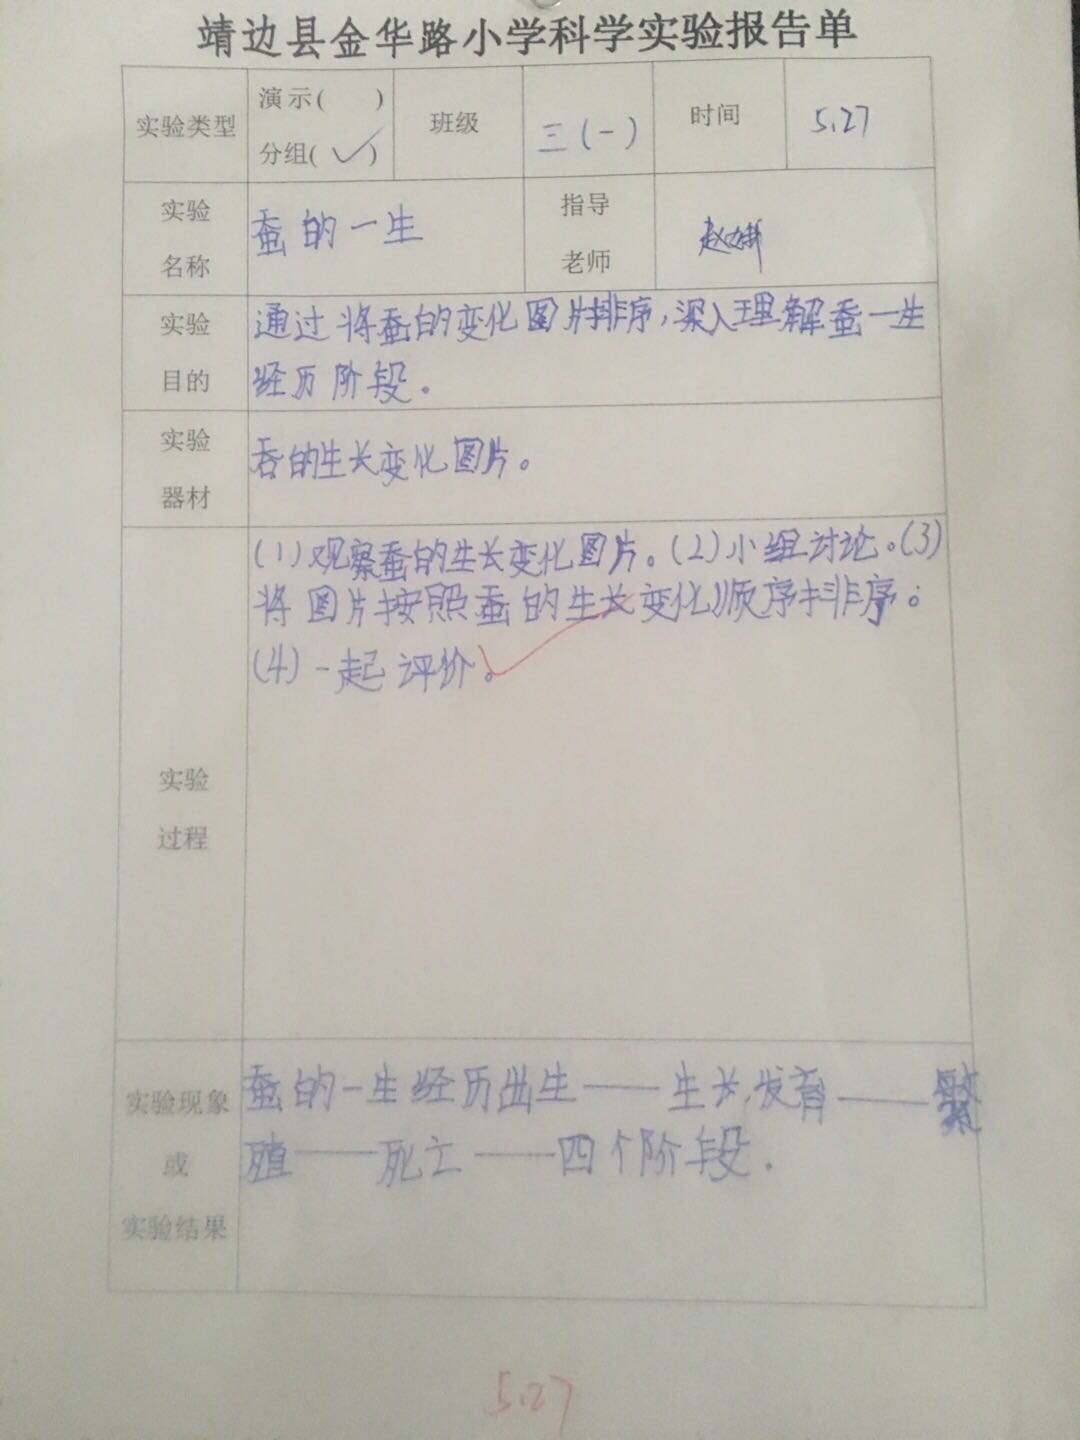 靖边县金华路小学科学实验报告单
实验类型
演示(    )
分组( ✓ )
班级
三(一)
时间
5.27
实验
名称
蚕的一生
指导
老师
实验
目的
通过将蚕的变化图片排序,深入理解蚕一生
经历阶段。
实验
器材
吞的生长变化图片。
实验
过程
(1)观察蚕的生长变化图片。(2)小组讨论。(3)
将图片按照蚕的生长变化顺序排序。
(4)一起评价。
实验现象
或
实验结果
蚕的一生经历出生——生长发育——繁
殖——死亡——四个阶段.
5.27